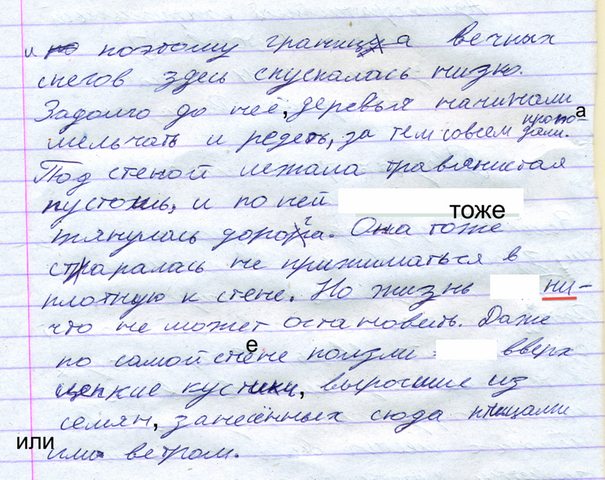 и поэтому граница вечных
снегов здесь спускалась низко.
Задолго до неё, деревья начинали
мельчать и редеть, за тем совсем пропа-
дали.
Под стеной лежала травянистая
пустошь, и по ней тоже
тянулась дорога. Она тоже
старалась не прижиматься в
плотную к стене. Но жизнь ни-
что не может остановить. Даже
по самой стене ползли вверх
цепкие кустики, выросшие из
семян, занесённых сюда птицами
или ветром.
или